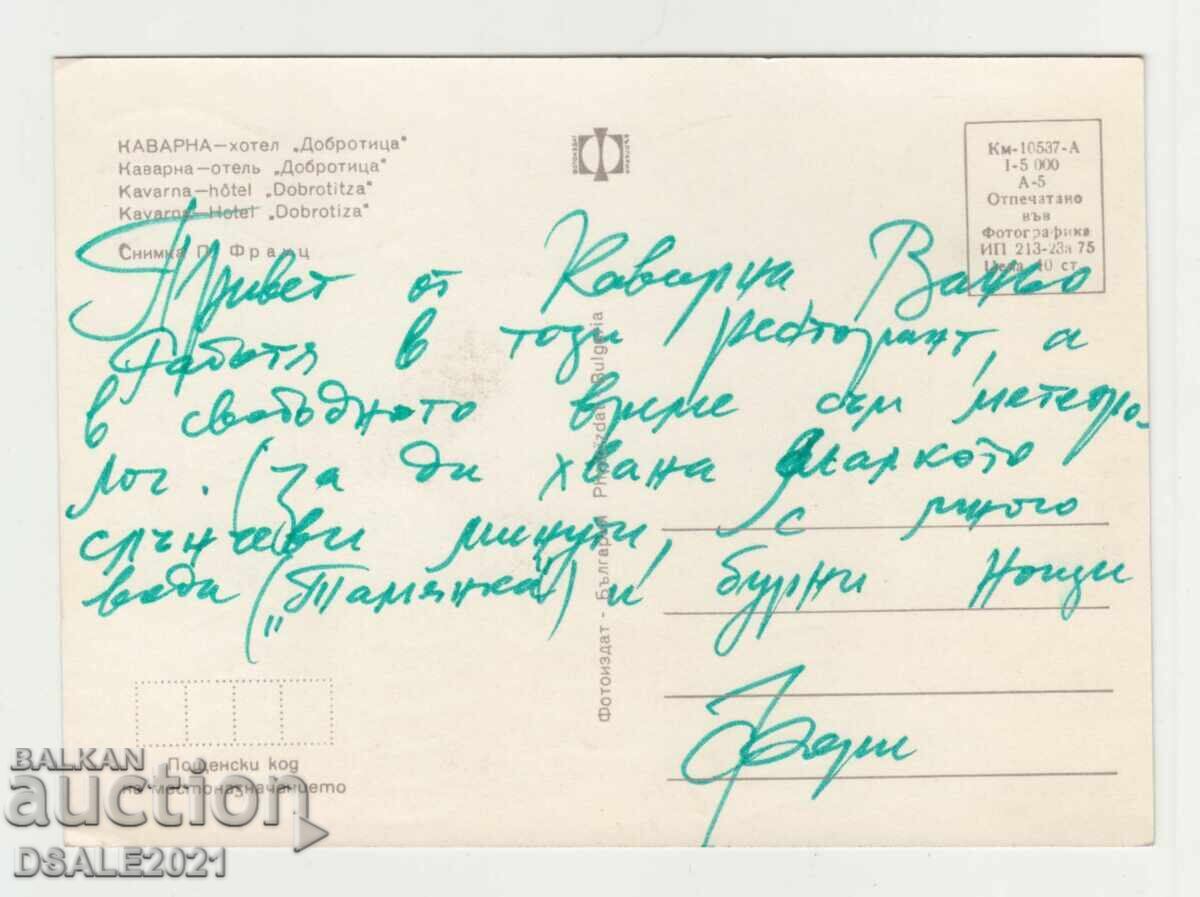 КАВАРНА—хотел „Добротица"
Каварна—отель „Добротица"
Kavarna—hôtel „Dobrotitza"
Kavarna—Hotel „Dobrotiza"
Снимка П. Франц
ФОТОИЗДАТ
БЪЛГАРИЯ
Км-10537-А
I-5 000
А-5
Отпечатано
във
Фотографика
ИП 213-23а 75
Цена 40 ст.
Привет от Каварна Ваньо
Работя в този ресторант, а
в свободното време съм метеоро-
лог. (За да хвана малкото
слънчеви минути, с много
вода („Тамянка") и бурни нощи
Фери
Фотоиздат - България Photoizdat Bulgaria
Пощенски код
на местоназначението
BALKAN
auction
DSALE2021